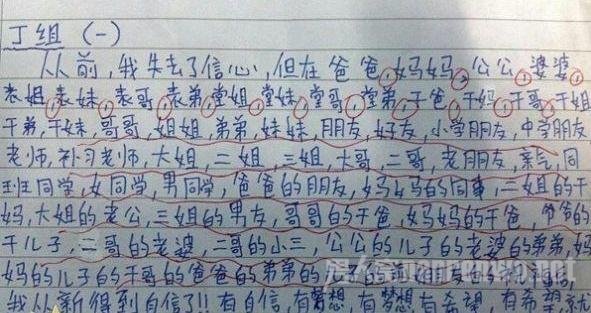 丁组 (一)
从前,我失去了信心,但在爸爸,妈妈,公公,婆婆,
表姐,表妹,表哥,表弟,堂姐,堂妹,堂哥,堂弟,干爸,干妈,干哥,干姐
干弟,干妹,哥哥,姐姐,弟弟,妹妹,朋友,好友,小学朋友,中学朋友,
老师,补习老师,大姐,二姐,三姐,大哥,二哥,老朋友,亲气,同
班同学,女同学,男同学,爸爸的朋友,妈妈的同事,二姐的干
妈,大姐的老公,三姐的男友,哥哥的干爸,妈妈的干爸,爷爷的
干儿子,二哥的老婆,二哥的小三,公公的儿子的老婆的弟弟,妈
妈的儿子的干哥的爸爸的弟弟的
我从新得到自信了!!有自信,有梦想,有梦想有希望,有希望就